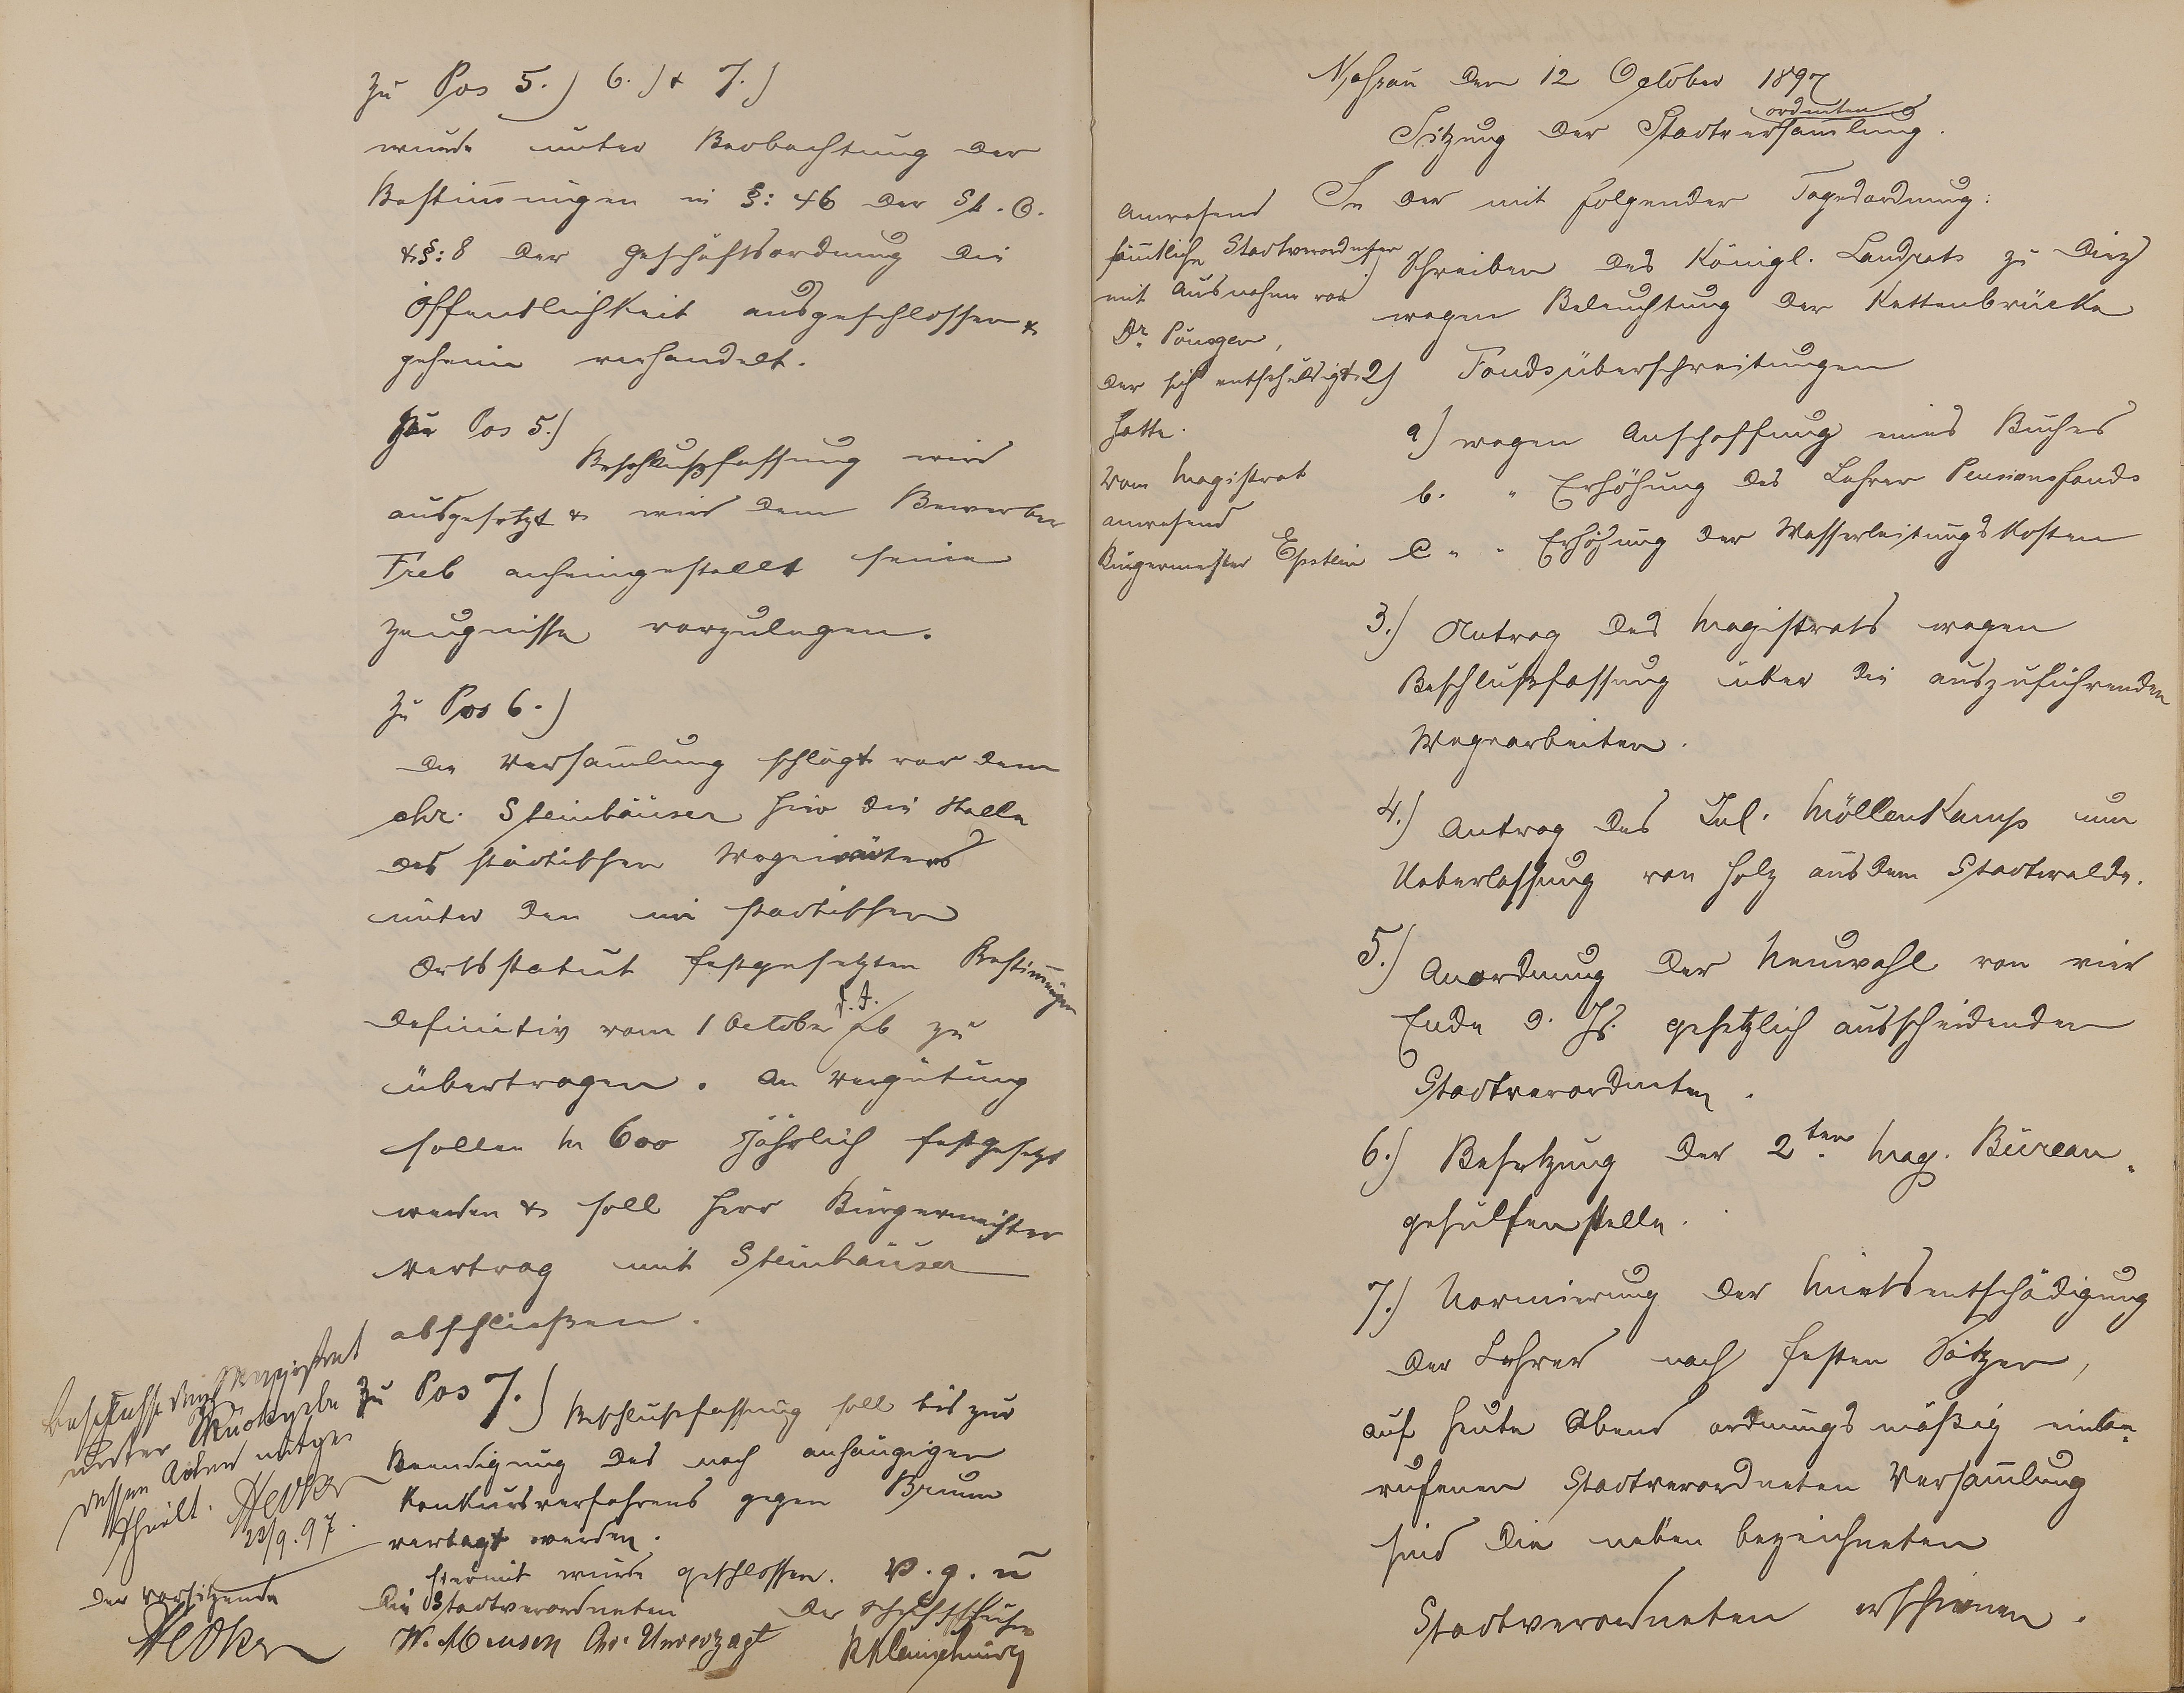 Zu Pos 5.) 6.) & 7.)
wurde unter Beobachtung der
Bestimungen in §: 46 der St. O.
& §: 8 der Geschäftsordnung die
Öffentlichkeit ausgeschlossen &
geheim verhandelt.
Zu Pos 5.)
Beschlußfassung wird
ausgesetzt & wird dem Bewerber
Treb anheimgestellt seine
Zeugnisse vorzulegen.
Zu Pos 6.)
Die Versamlung schlägt vor dem
Chr. Steinhäuser hier die Stelle
des städtischen Wegewärters
unter den im städtischen
Ortsstatut festgesetzten Bestimungen
definitiv vom 1 October d. J. ab zu
übertragen. An Vergütung
sollen M 600 jährlich festgesetzt
werden & soll Herr Bürgermeister
Vertrag mit Steinhäuser
abschließen.
Zu Pos 7.) Beschlußfassung soll bis zur
Beendigung des noch anhängigen
Konkursverfahrens gegen Brumm
vertagt werden.
Hiermit wurde geschlossen. V. g. u
Die Stadtverordneten Der Schriftführer
W. Chr. Unverzagt
Magistrat
unter Rückgabe
dessen Akten mitge-
theilt.
23/9. 97.
Der Vorsitzende
Nassau den 12 October 1897
Sitzung der Stadtverordnetenversamlung.
In der mit folgender Tagesordnung:
Anwesend
sämtliche Stadtverordneten
mit Ausnahme von
Dr. Pönsgen,
der sich entschuldigt
hatte.
Vom Magistrat
anwesend
Bürgermeister Epstein
1) Schreiben des Königl. Landrats zu Diez
wegen Beleuchtung der Kettenbrücke
2) Fondsüberschreitungen
a) wegen Anschaffung eines Buches
b. " Erhöhung des Lehrer Pensionsfonds
c " " Erhöhung der Wasserleitungskosten
3.) Antrag des Magistrats wegen
Beschlußfassung über die auszuführenden
Wegearbeiten.
4.) Antrag des Jul. Möllenkamp um
Ueberlassung von Holz aus dem Stadtwalde.
5.) Anordnung der Neuwahl von vier
Ende d. Js. gesetzlich ausscheidenden
Stadtverordneten.
6.) Besetzung der 2ten Mag. Büreau-
gehülfenstelle.
7.) Normierung der Mietsentschädigung
der Lehrer nach festen Sätzen,
auf heute Abend ordnungsmäßig einbe-
rufenen Stadtverordneten Versamlung
sind die neben bezeichneten
Stadtverordneten erschienen.